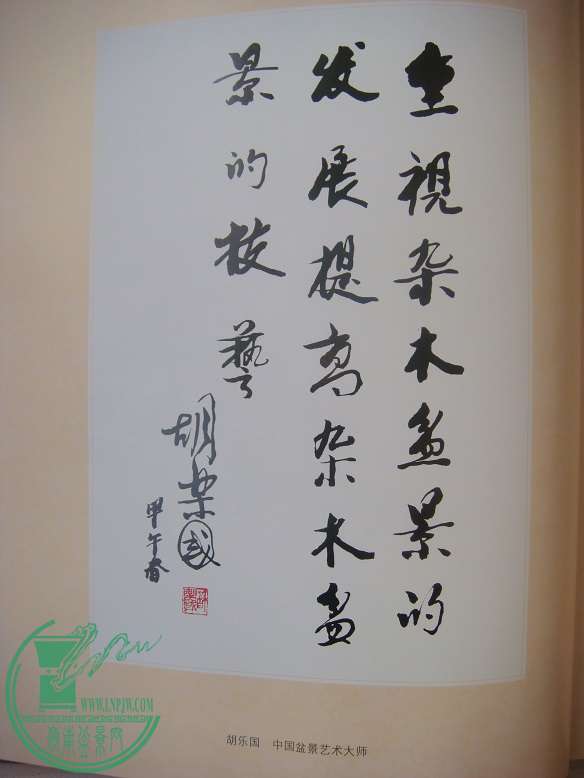 重視杂木盆景的
发展提高杂木盆
景的技藝
胡樂國
甲午春
WWW.LNPJW.COM
嶺南盆景网
胡乐国 中国盆景艺术大师